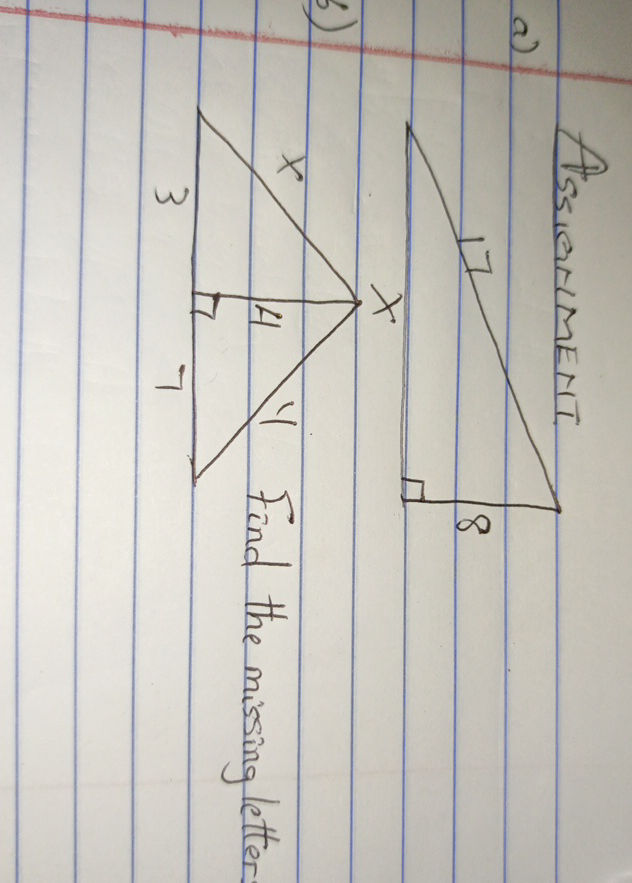 ASSIGNMENT
a)
17
8
X
b)
x
4
y
3
7
Find the missing letters